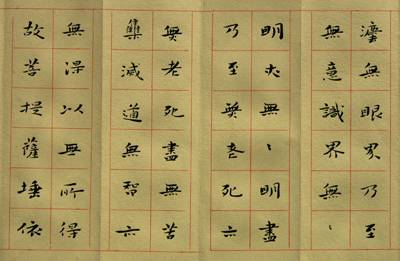 塵無眼界乃至
無意識界無〻
明亦無〻明盡
乃至無老死亦
無老死盡無苦
集滅道無智亦
無得以無所得
故菩提薩埵依